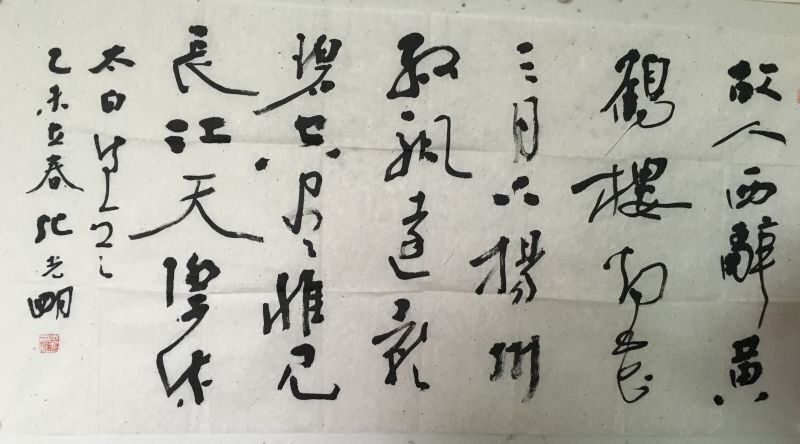 故人西辭黄
鶴樓烟花
三月下揚州
孤帆遠影
碧空盡惟見
長江天際流
太白詩
乙未立春光明